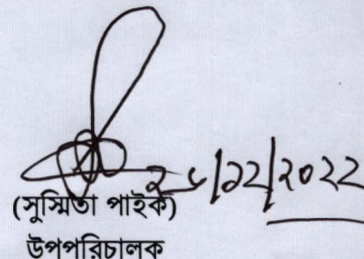 /১২/২০২২
(সুস্মিতা পাইক)
উপপরিচালক